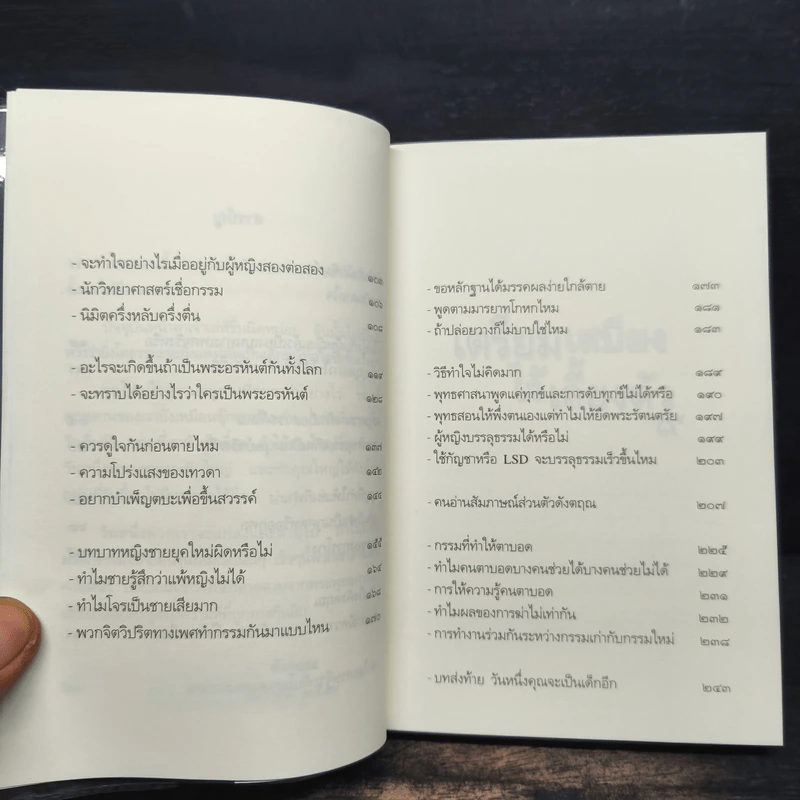 - จะทำใจอย่างไรเมื่ออยู่กับผู้หญิงสองต่อสอง ๑๐๓
- นักวิทยาศาสตร์เชื่อกรรม ๑๐๖
- นิมิตครึ่งหลับครึ่งตื่น ๑๐๘
- อะไรจะเกิดขึ้นถ้าเป็นพระอรหันต์กันทั้งโลก ๑๑๙
- จะทราบได้อย่างไรว่าใครเป็นพระอรหันต์ ๑๒๘
- ควรดูใจกันก่อนตายไหม ๑๓๗
- ความโปร่งแสงของเทวดา ๑๔๒
- อยากบำเพ็ญตบะเพื่อขึ้นสวรรค์ ๑๔๔
- บทบาทหญิงชายยุคใหม่ผิดหรือไม่ ๑๕๕
- ทำไมชายรู้สึกว่าแพ้หญิงไม่ได้ ๑๖๔
- ทำไมโจรเป็นชายเสียมาก ๑๖๘
- พวกจิตวิปริตทางเพศทำกรรมกันมาแบบไหน ๑๗๐
- ขอหลักฐานได้มรรคผลง่ายใกล้ตาย ๑๗๓
- พูดตามมารยาทโกหกไหม ๑๘๑
- ถ้าปล่อยวางก็ไม่บาปใช่ไหม ๑๘๓
- วิธีทำใจไม่คิดมาก ๑๘๙
- พุทธศาสนาพูดแค่ทุกข์และการดับทุกข์ไม่ได้หรือ ๑๙๐
- พุทธสอนให้พึ่งตนเองแต่ทำไมให้ยึดพระรัตนตรัย ๑๙๗
- ผู้หญิงบรรลุธรรมได้หรือไม่ ๑๙๙
- ใช้กัญชาหรือ LSD จะบรรลุธรรมเร็วขึ้นไหม ๒๐๓
- คนอ่านสัมภาษณ์ส่วนตัวดังตฤณ ๒๐๗
- กรรมที่ทำให้ตาบอด ๒๒๕
- ทำไมคนตาบอดบางคนช่วยได้บางคนช่วยไม่ได้ ๒๒๙
- การให้ความรู้คนตาบอด ๒๓๑
- ทำไมผลของการฆ่าไม่เท่ากัน ๒๓๒
- การทำงานร่วมกันระหว่างกรรมเก่ากับกรรมใหม่ ๒๓๘
- บทส่งท้าย วันหนึ่งคุณจะเป็นเด็กอีก ๒๔๓